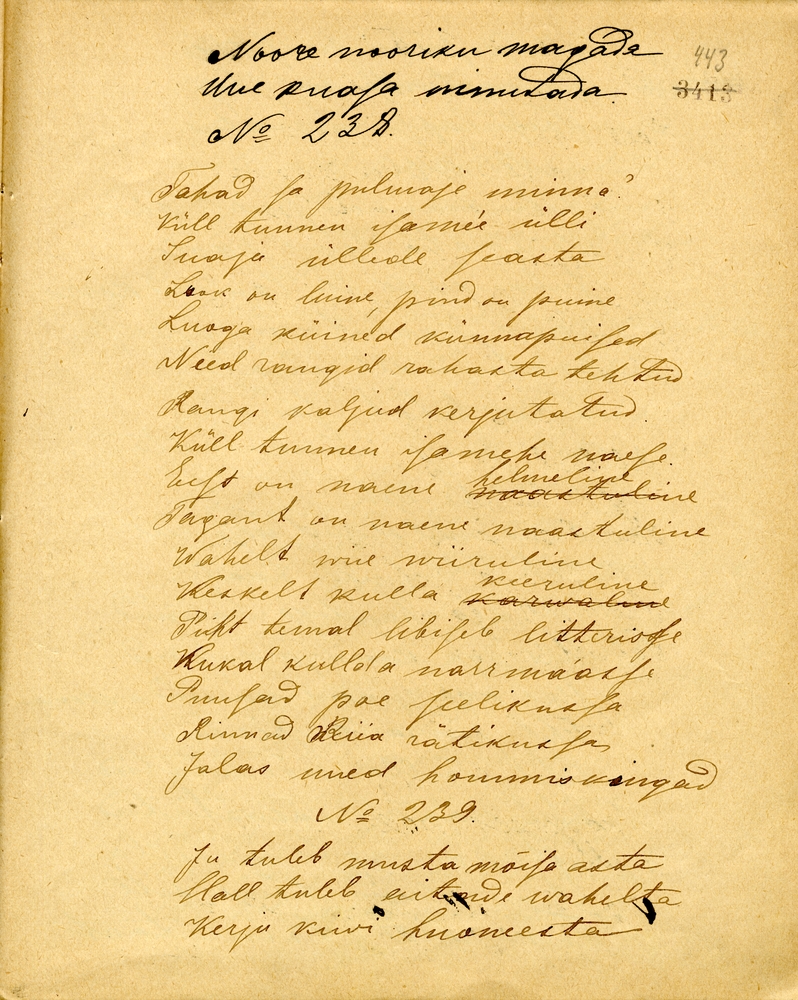 Noore nooriku magada
443
Uue kuasa minutada.
3413
No 238.
Tahad sa pulmaje minna?
Küll tunnen isameè ülli
Suaju üllede seasta
Look on luine, pind on puine
Luoga küined künnapuised
Need rangid rahasta tehtud
Rangi kaljud kerjutatud.
Küll tunnen isamehe naese.
Eest on naene helmeline
naastuline
Tagant on naene naastuline
Wahelt wiie wiiruline
Keskelt kulla keeruline
karwaline
Piht temal libiseb litterisse
Kukal kullda narrmaasse
Puusad poe seelikussa
Rinnad Riia rätikussa
Jalas uued hommiskingad
No 239.
Ju tuleb musta mõisa asta
Hall tuleb aitade wahelta
Kerju kiwi huoneesta